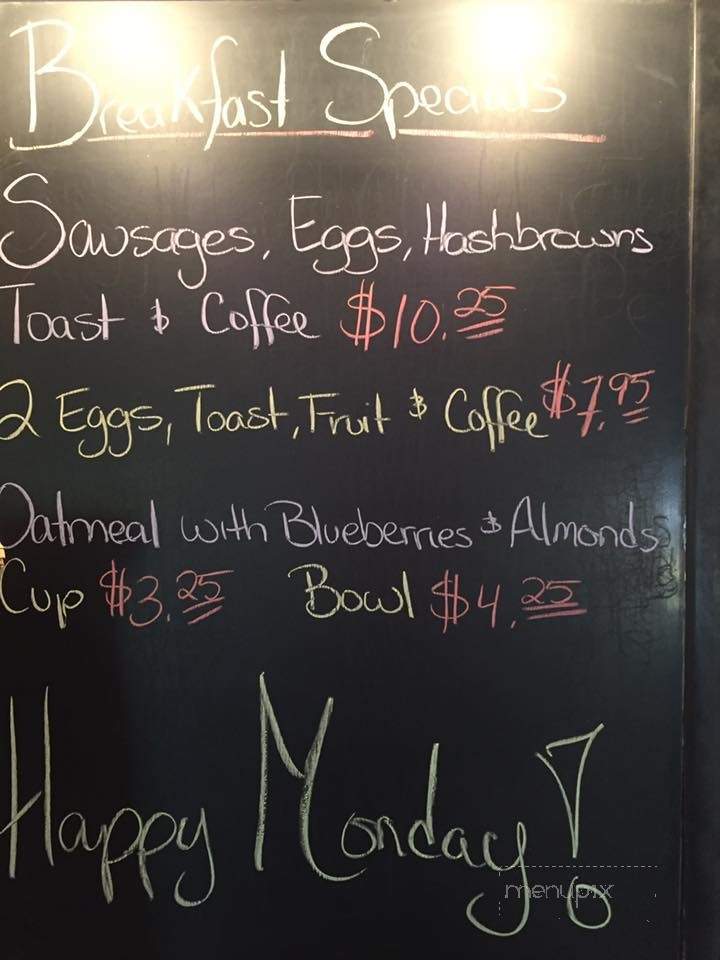 Breakfast Specials
Sausages, Eggs, Hashbrowns
Toast & Coffee $10.25
2 Eggs, Toast, Fruit & Coffee $7.95
Oatmeal with Blueberries & Almonds
Cup $3.25 Bowl $4.25
Happy Monday!
menupix